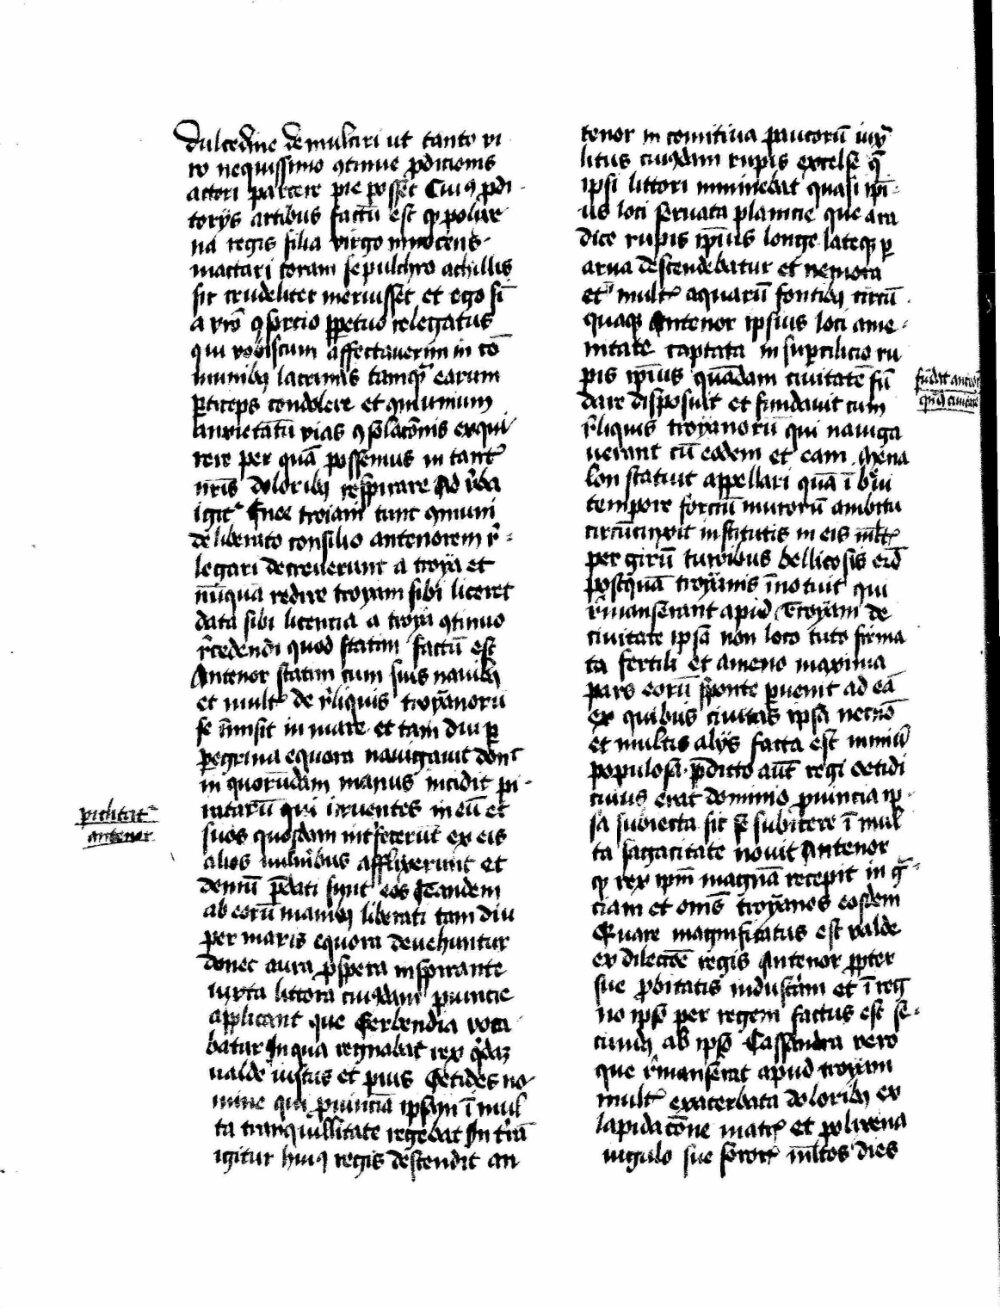 dulcedine demulceri ut tanto vi
ro nequissimo ꝯtinue ꝓdicionis
actori parcere pie posset Cuiꝰ ꝓdi-
torijs artibus factū est ꝙ polixe
na regis filia virgo innocens
mactari coram sepulchro achillis
sic crudeliter meruisset et ego sū
a vr̄o ꝯsorcio ꝑpetuo relegatus
qui vobiscum affectauerim in cō
munibꝫ lacrimis tamqꝫ earum
ꝑticeps condolere et qm̄munium
anxietatū vias ꝯsolacōnis exqui
rere per quā possemus in tant
nr̄is doloribꝫ respirare Ad v̄ba
igit Enee troiani tunc ꝯmuni
deliberato consilio antenorem r̄-
legari decreuerunt a troya et
nūqua redire troyam sibi liceret
data sibi licencia a troya ꝯtinuo
r̄cedendi quod statim factū est
Antenor statim cum suis nauibꝫ
et mult de r̄liquis troyanorū
se īmisit in mare et tam diu ꝑ
ꝑegrina equora nauigauit donc
in quorundam manus incidit pi-
ratarū qui irruentes in eū et
suos quosdam interfecerūt ex eis
alios vulnibus afflixerunt et
demū ꝑdati sunt eos Tandem
ab eorū manibꝫ liberati tam diu
per maris equora deuehuntur
donec aura ꝓspera inspirante
iuxta littora cuiusdam ꝓuincie
applicant que Gerbendia voca
batur In qua regnabat rex q̄daꝫ
valde iustus et pius Oetides no-
mine qui ꝓuinciā ipsam ī mul
ta tranquillitate regebat In trā
igitur huiꝰ regis descendit an
tenor in comitiua paucorū iux̄
litus cuiusdam rupis excelse q̄
ipsi littori imminebat quasi ipi-
us loci seruata planicie que a ra
dice rupis ipīus longe lateqꝫ ꝑ
arua descendebatur et nemora
et mult aquarū fontibꝫ circū
quaqꝫ Antenor ipsius loci ame-
nitate captata in suꝑcilicio ru
pis ipīus quādam ciuitatē fū
dare disposuit et fundauit cum
r̄liquis troyanorū qui nauiga
uerant cū eodem et eam Mena
lon statuit appellari quā ī breui
tempore forciū murorū ambitu
circūcinxit institutis in eis mlt
per girū turribus bellicosis eiꝰ
postquā troyanis īnotuit qui
r̄manserant apud Troyam de
ciuitate ipsa non loco tuto firma
ta fertili et ameno maxima
pars eorū sponte ꝑuenit ad eā
ex quibus ciuitas ipsa necnō
et multis alijs facta est nimiū
populosa p̄dicto aut̄ regi Oetidi
cuius erat dominio ꝓuincia ip-
sa subiecta sic se subicere ī mul
ta sagacitate nouit Antenor
ꝙ rex ipm̄ magnā recepit in gr̄-
ciam et omīs troyanos eosdem
Quare magnificatus est valde
ex dilectōe regis Antenor ꝓpter
sue ꝓbitatis industriam et ī reg
no ipso per regem factus est se-
cundꝰ ab ipso Cassandra vero
que r̄manserat apud troyam
mult exacerbata doloribꝫ ex
lapidacōne matr et polixena
iugulo sue soror ml̄tos dies
pichitat
antenor
fūdat anteno
quāꝫ ciuitatē